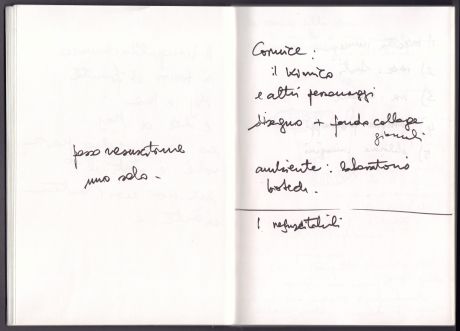 posso resuscitarne
uno solo.
Cornice:
il Kimico
e altri personaggi
disegno + fondo collage
giornali
ambiente: laboratorio
I resuscitabili